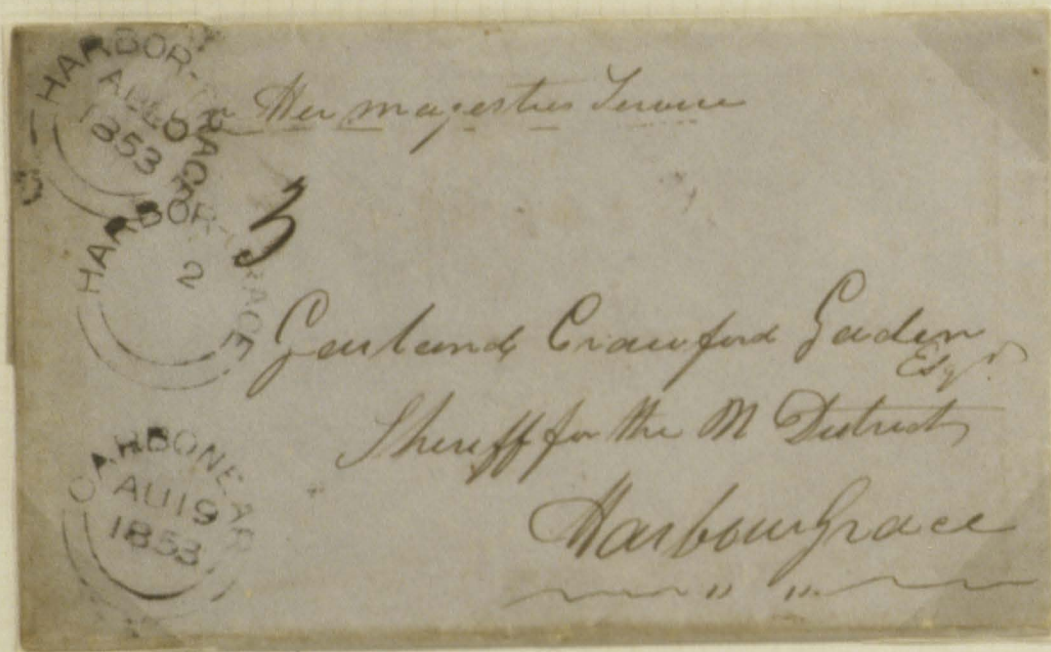 HARBOR-GRACE
AU 
1853
On Her Magesties Service
3
HARBOR-GRACE
2
Garland Crawford Gaden
Esqr.
Sheriff for the N District
Harbour Grace
CARBONEAR
AU 19
1853